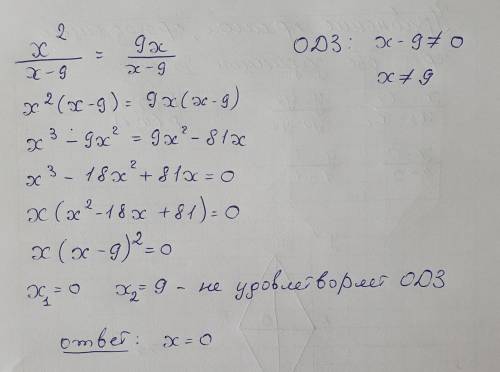 x²/(x-9) = 9x/(x-9)
ОДЗ: x-9≠0
x≠9
x²(x-9) = 9x(x-9)
x³-9x² = 9x²-81x
x³-18x²+81x=0
x(x²-18x+81)=0
x(x-9)²=0
x₁=0 x₂=9 - не удовлетворяет ОДЗ
ответ: x=0